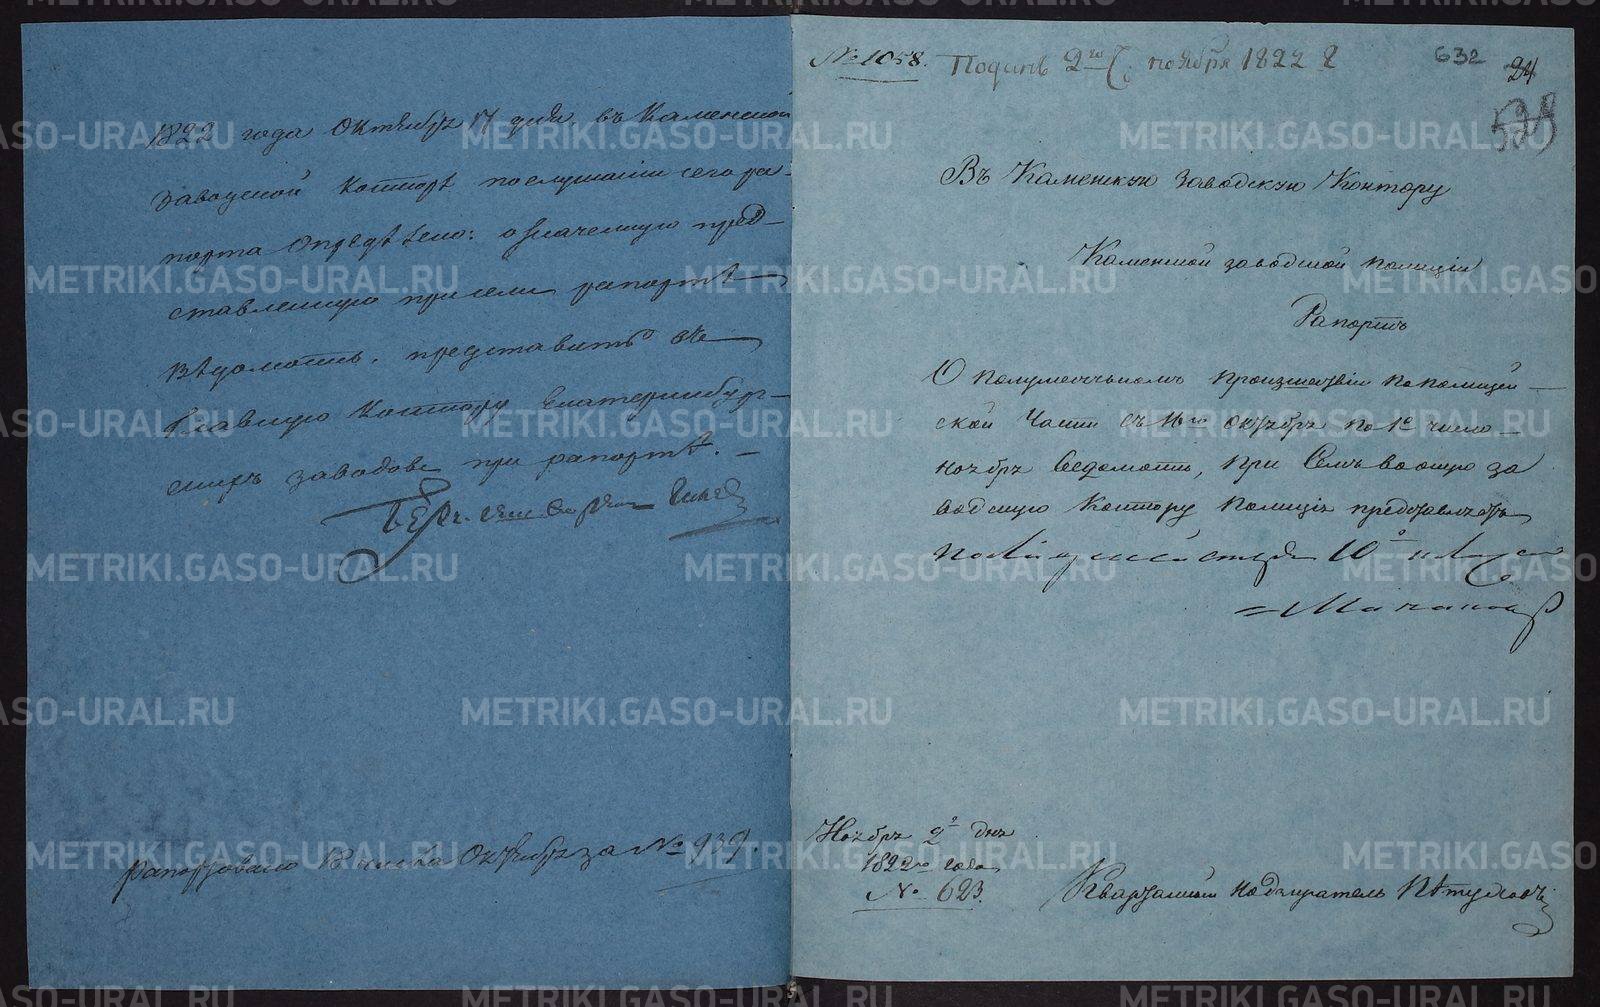 1822 года Октября 17 дня, въ Каменской
заводской Конторе по слушанiи сего ра-
порта Определено: означенную пред-
ставленную при семъ рапорте
ведомость, представить въ
Главную Контору Екатеринбург-
скихъ заводовъ при рапорте.
рапортовано 18 числа Октября за № 939.
№ 1058. Поданъ 2го ноября 1822
632
24
Въ Каменскую Заводскую Контору
Каменской заводской полицiи
Рапортъ
О полумесячномъ произшествiи по полицей-
ской Части съ 16го октября по 1е число
ноября Ведомость, при Семъ во оную за
водскую Контору Полицiя представляетъ
Ноября 2 дня
1822го года
№ 623.
Квартальный надзиратель Петуховъ
METRIKI.GASO-URAL.RU